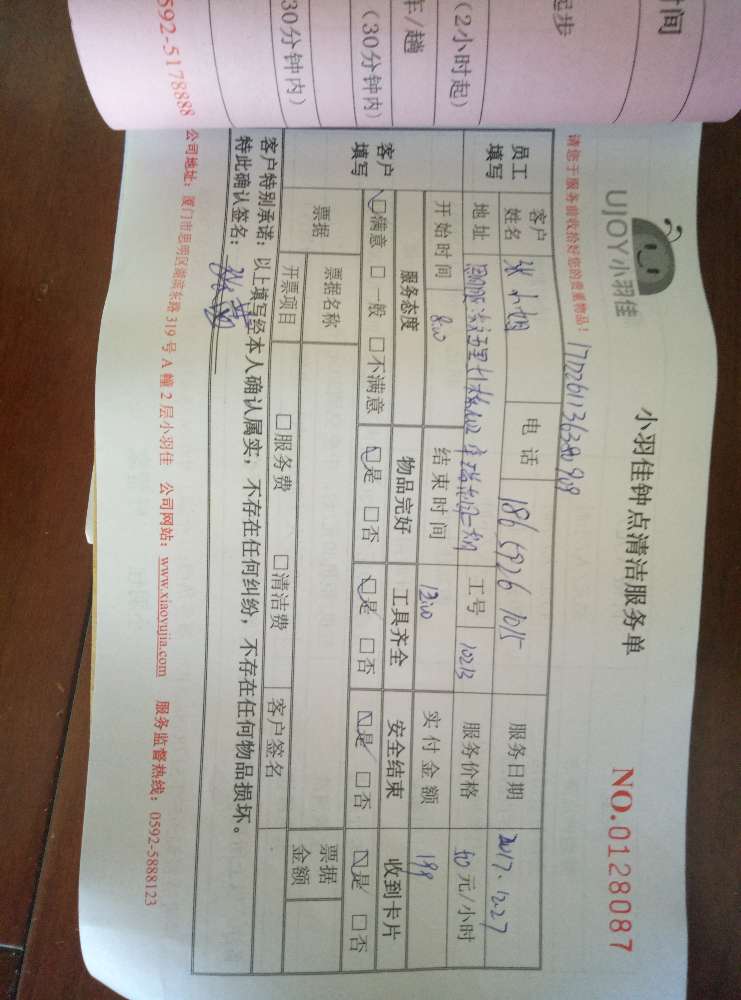 时间
起步
(2小时起)
车/趟
(30分钟内)
(30分钟内)
592-5178888
UJOY小羽佳
小羽佳钟点清洁服务单
NO.0128087
请您于服务前收拾好您的贵重物品!
员工填写
客户姓名
张小姐
电话
186 5926 1015
服务日期
2017.12.27
地址
工号
10213
服务价格
50元/小时
开始时间
8:00
结束时间
12:00
实付金额
199
客户填写
服务态度
物品完好
工具齐全
安全结束
收到卡片
☑满意 □一般 □不满意
☑是 □否
☑是 □否
☑是 □否
☑是 □否
票据
票据名称
票据金额
开票项目
□服务费 □清洁费
客户签名
客户特别承诺:以上填写经本人确认属实,不存在任何纠纷,不存在任何物品损坏。
特此确认签名:
公司地址:厦门市思明区湖滨东路319号A幢2层小羽佳 公司网站:www.xiaoyujia.com 服务监督热线:0592-5888123